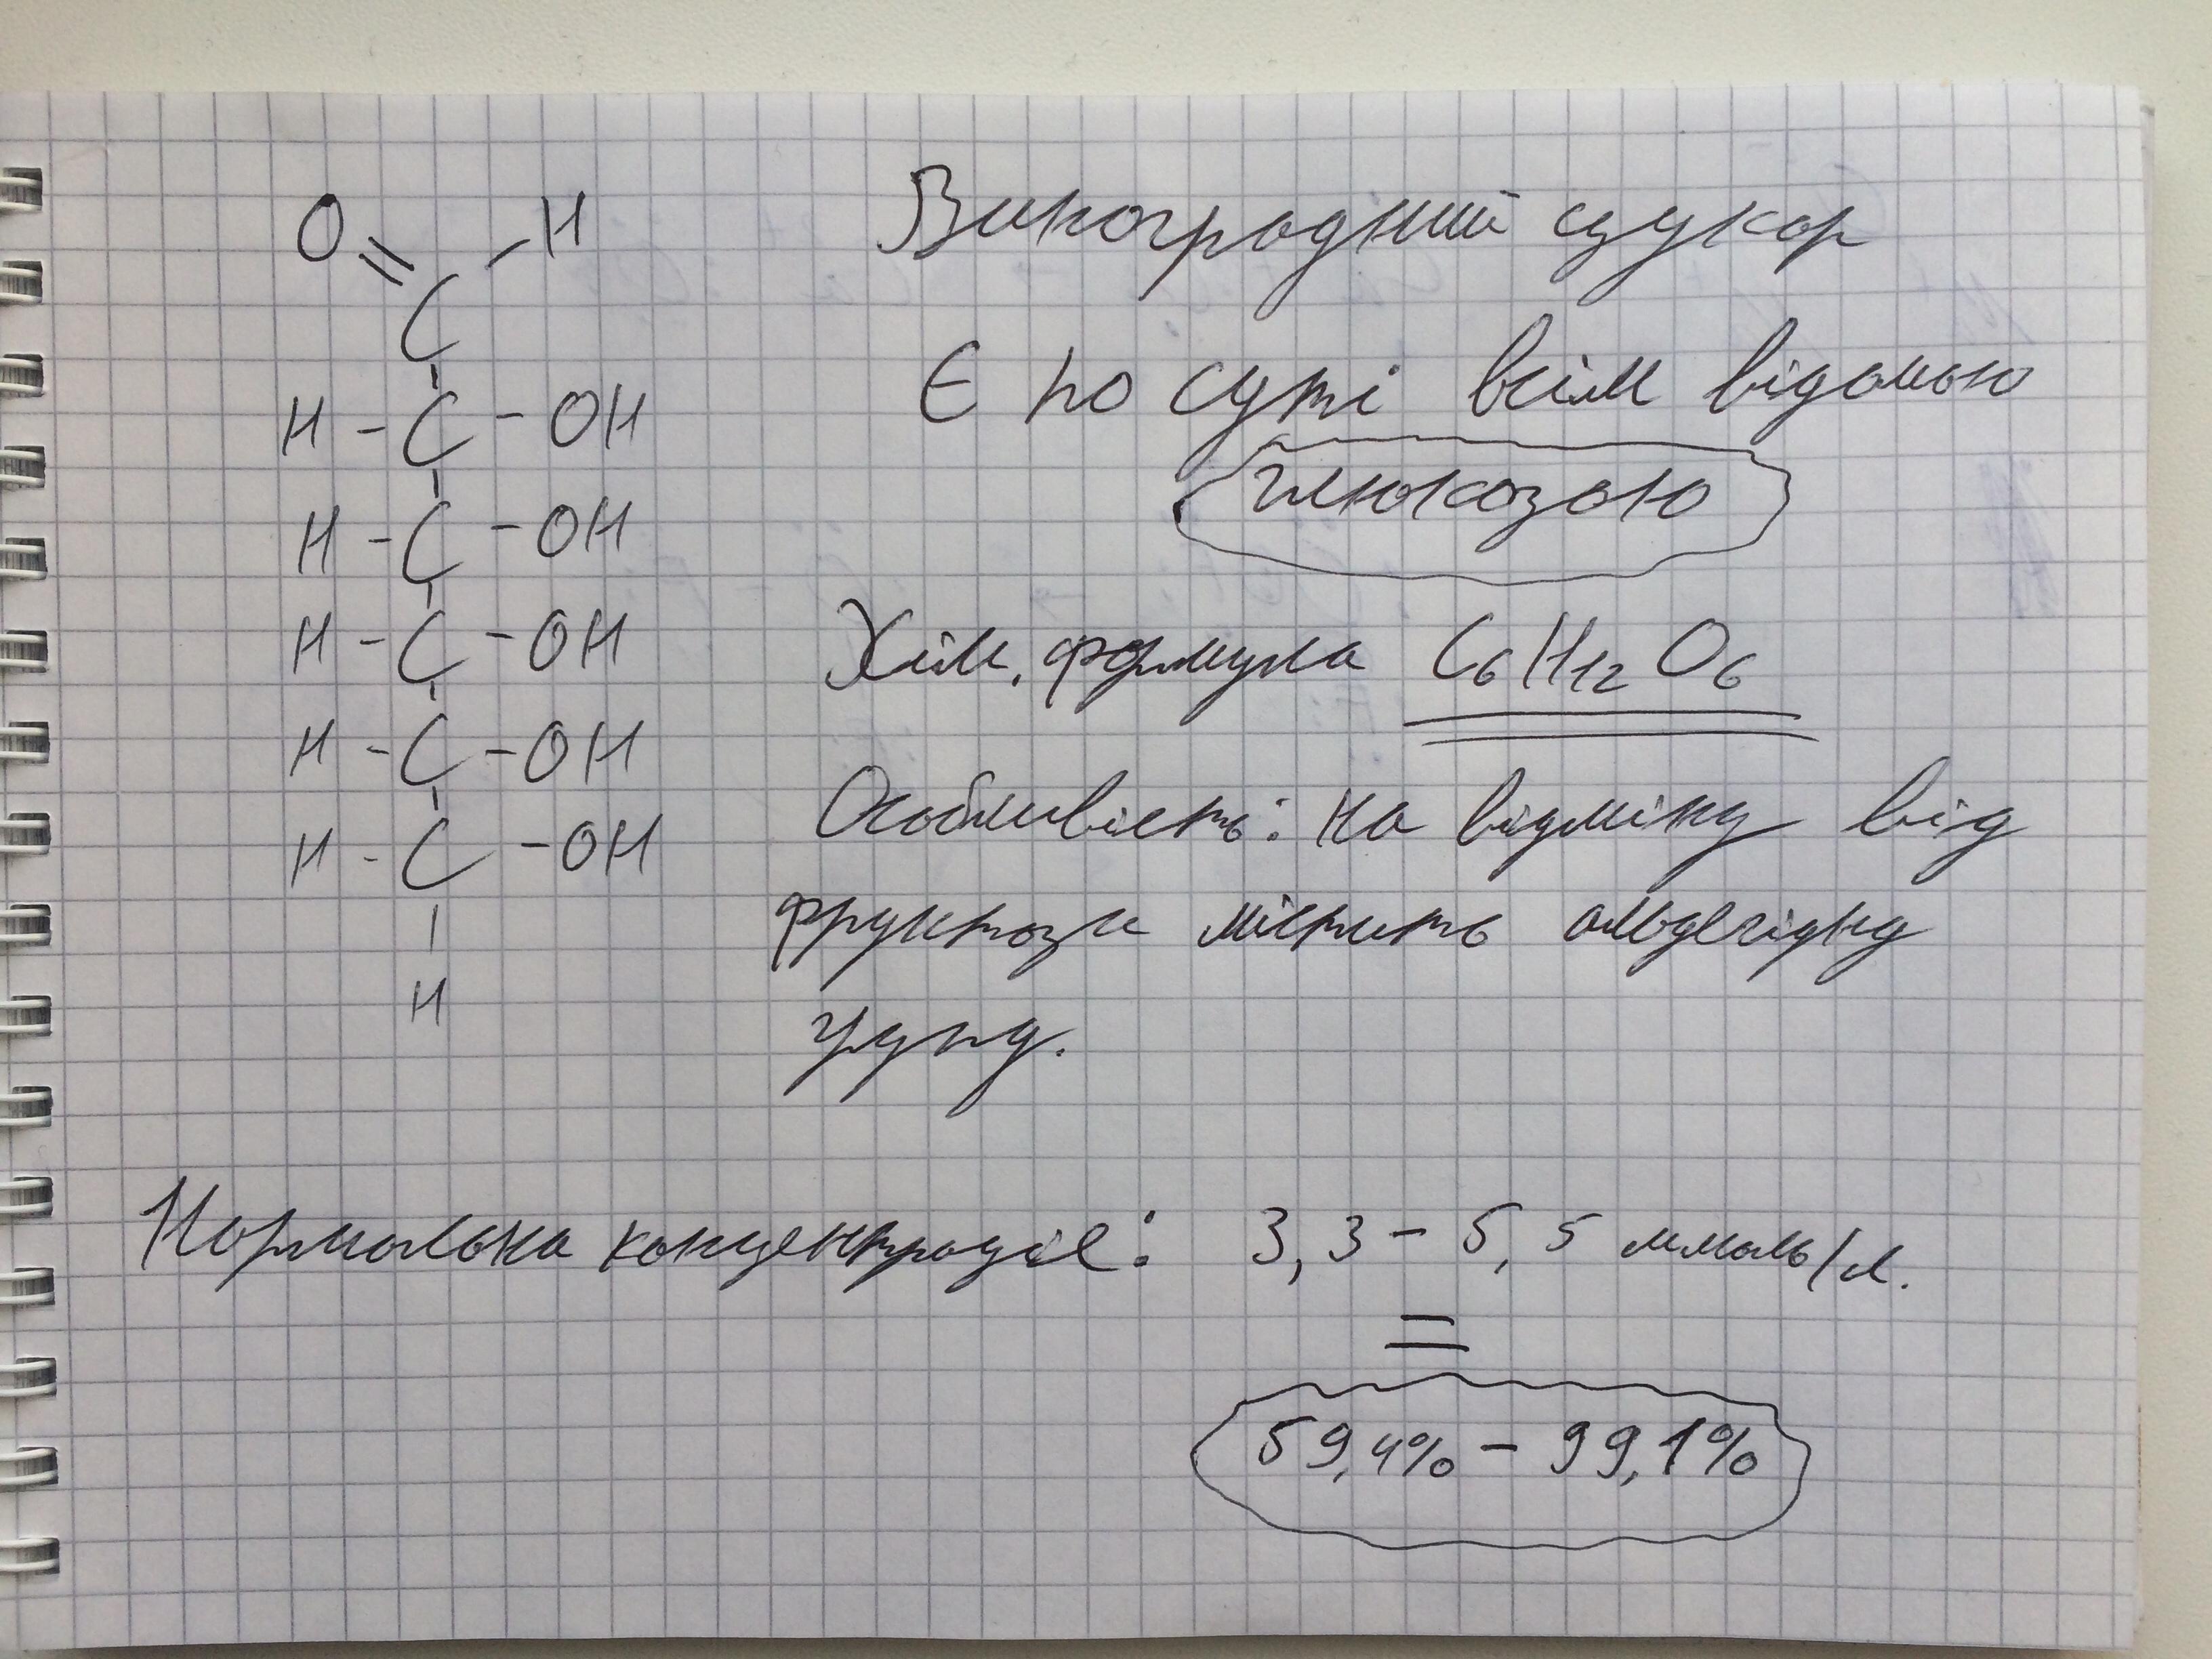 O
=
- H
C
-
H - C - OH
-
H - C - OH
-
H - C - OH
-
H - C - OH
-
H - C - OH
|
H
Виноградний цукор
Є по суті всім відомою
глюкозою
Хім. формула C₆H₁₂O₆
Особливість: на відміну від
фруктози містить альдегідну
групу.
Нормальна концентрація: 3,3 - 5,5 ммоль/л.
=
59,4% - 99,1%